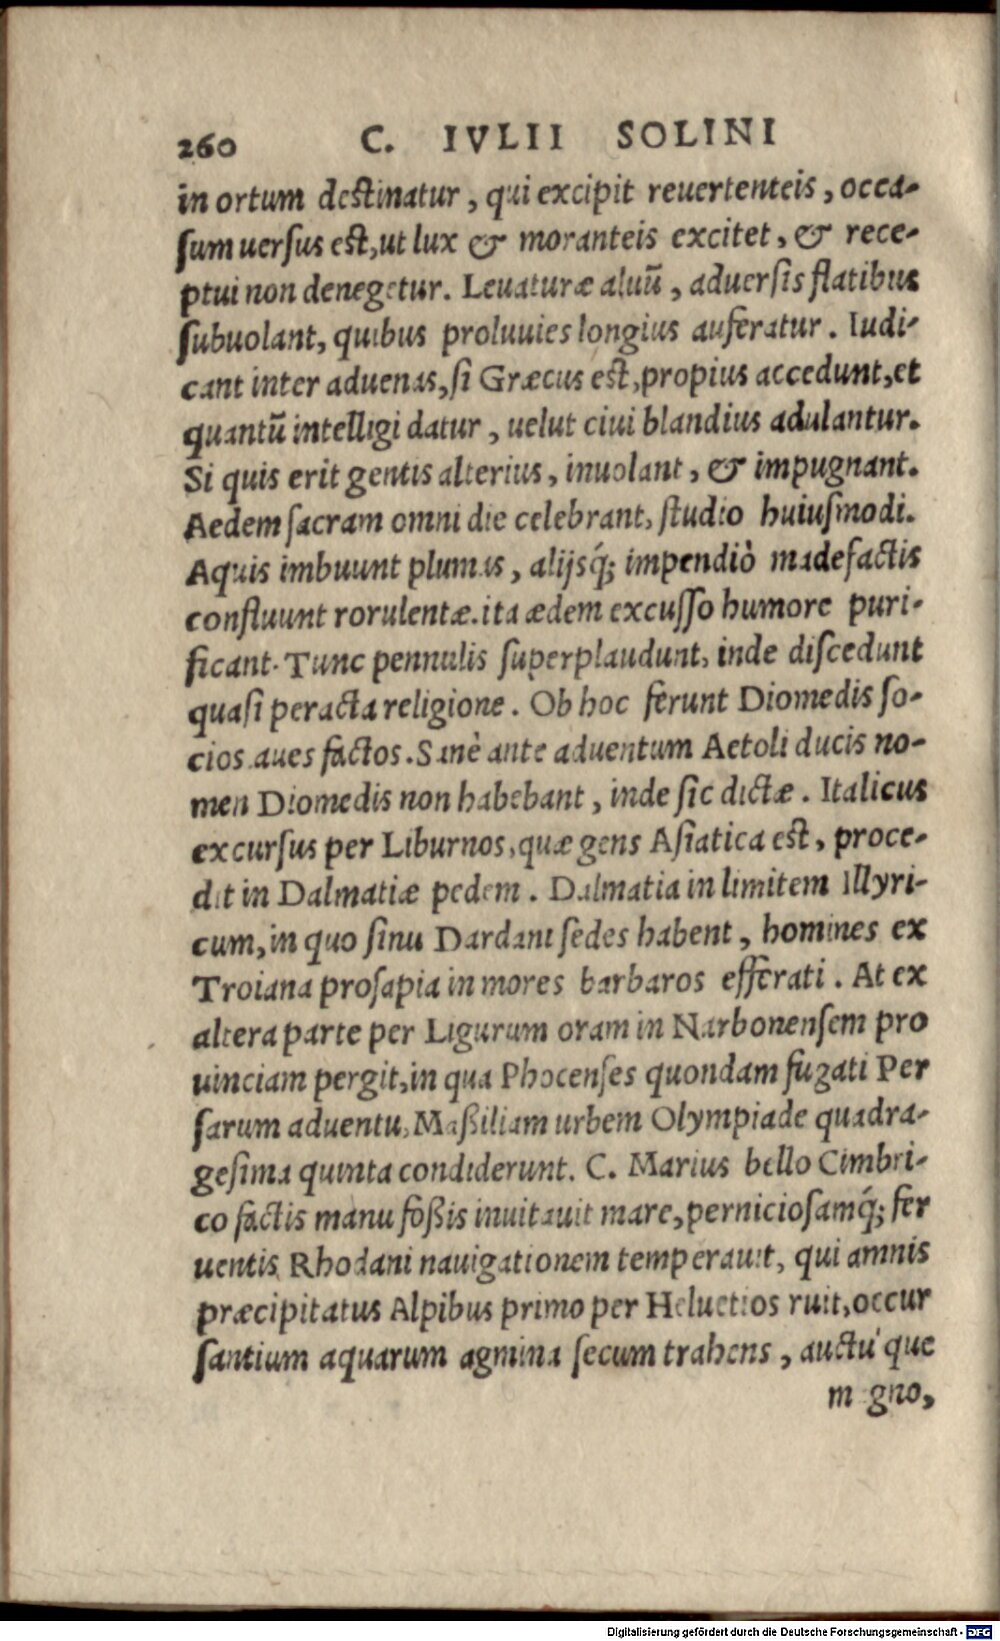 260 C. IVLII SOLINI
in ortum destinatur, qui excipit reuertenteis, occa-
sum uersus est, ut lux & moranteis excitet, & rece-
ptui non denegetur. Leuaturæ aluū, aduersis flatibus
subuolant, quibus proluuies longius auferatur. Iudi-
cant inter aduenas, si Græcus est, propius accedunt, et
quantū intelligi datur, uelut ciui blandius adulantur.
Si quis erit gentis alterius, inuolant, & impugnant.
Aedem sacram omni die celebrant, studio huiusmodi.
Aquis imbuunt plumas, alijsq́; impendiò madefactis
confluunt rorulentæ. ita ædem excusso humore puri-
ficant. Tunc pennulis superplaudunt, inde discedunt
quasi peracta religione. Ob hoc ferunt Diomedis so-
cios aues factos. Sanè ante aduentum Aetoli ducis no-
men Diomedis non habebant, inde sic dictæ. Italicus
excursus per Liburnos, quæ gens Asiatica est, proce-
dit in Dalmatiæ pedem. Dalmatia in limitem Illyri-
cum, in quo sinu Dardani sedes habent, homines ex
Troiana prosapia in mores barbaros efferati. At ex
altera parte per Ligurum oram in Narbonensem pro
uinciam pergit, in qua Phocenses quondam fugati Per
sarum aduentu, Maßiliam urbem Olympiade quadra-
gesima quinta condiderunt. C. Marius bello Cimbri-
co factis manu foßis inuitauit mare, perniciosamq́; fer
uentis Rhodani nauigationem temperauit, qui amnis
præcipitatus Alpibus primo per Heluetios ruit, occur
santium aquarum agmina secum trahens, auctu' que
m gno,
Digitalisierung gefördert durch die Deutsche Forschungsgemeinschaft - DFG